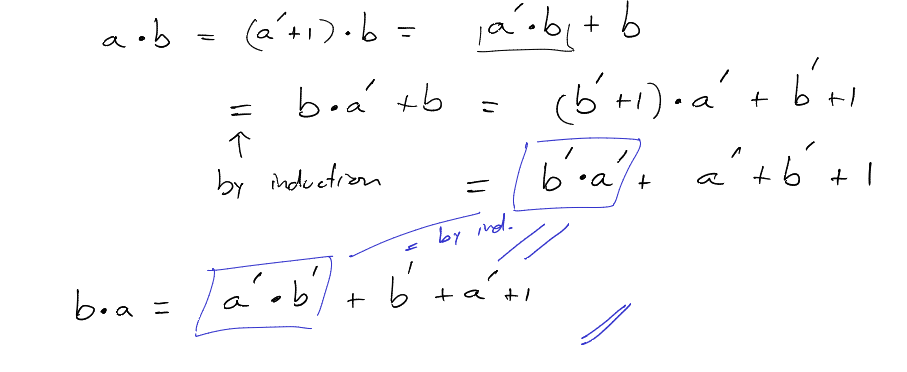 a·b = (a'+1)·b = a'·b + b
= b·a' + b = (b'+1)·a' + b'+1
↑
by induction = b'·a' + a' + b' + 1
= by ind.
b·a = a'·b' + b' + a' + 1